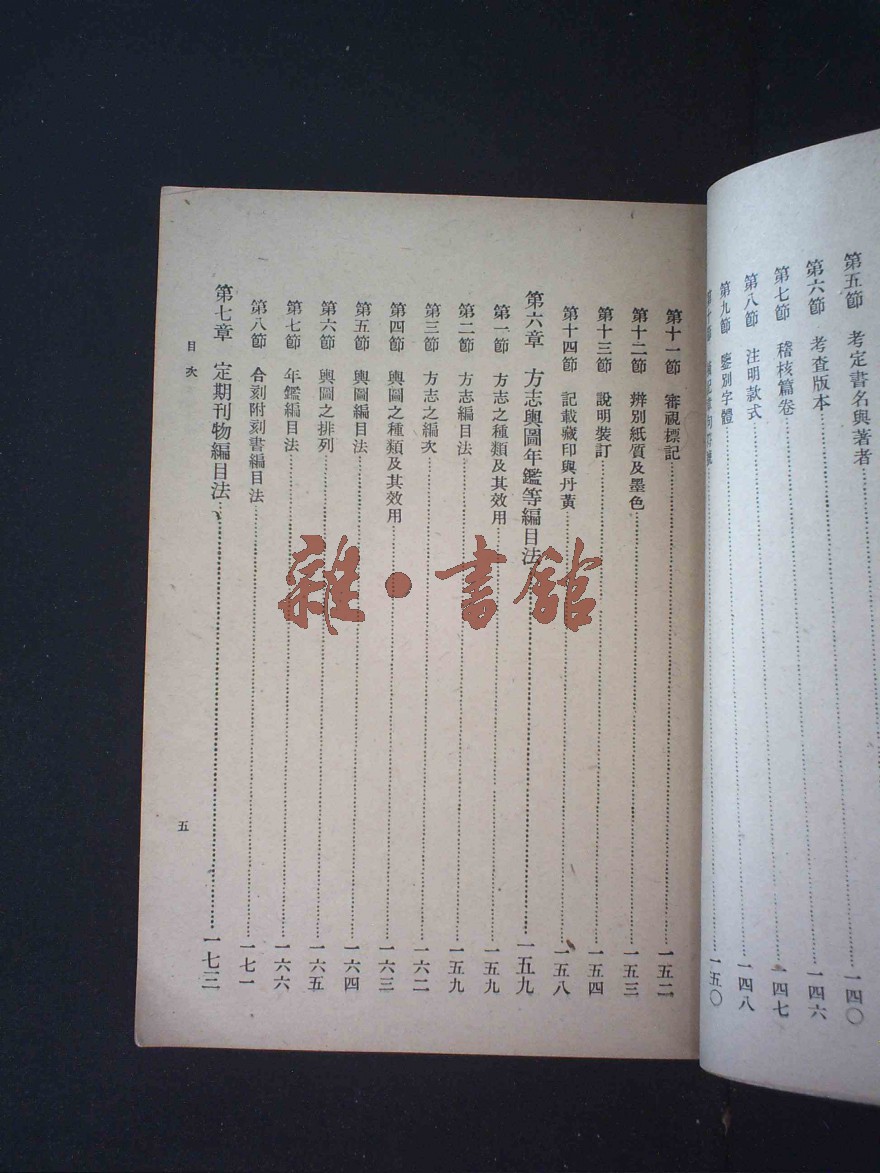 第五節　考定書名與著者……一四〇
第六節　考查版本……一四六
第七節　稽核篇卷……一四七
第八節　注明款式……一四八
第九節　鑒別字體……一五〇
第十一節　審視標記……一五二
第十二節　辨別紙質及墨色……一五三
第十三節　說明裝訂……一五四
第十四節　記載藏印與丹黃……一五八
第六章　方志輿圖年鑑等編目法……一五九
第一節　方志之種類及其效用……一五九
第二節　方志編目法……一五九
第三節　方志之編次……一六二
第四節　輿圖之種類及其效用……一六三
第五節　輿圖編目法……一六四
第六節　輿圖之排列……一六五
第七節　年鑑編目法……一六六
第八節　合刻附刻書編目法……一七一
第七章　定期刊物編目法……一七三
目次
五
雜・書館